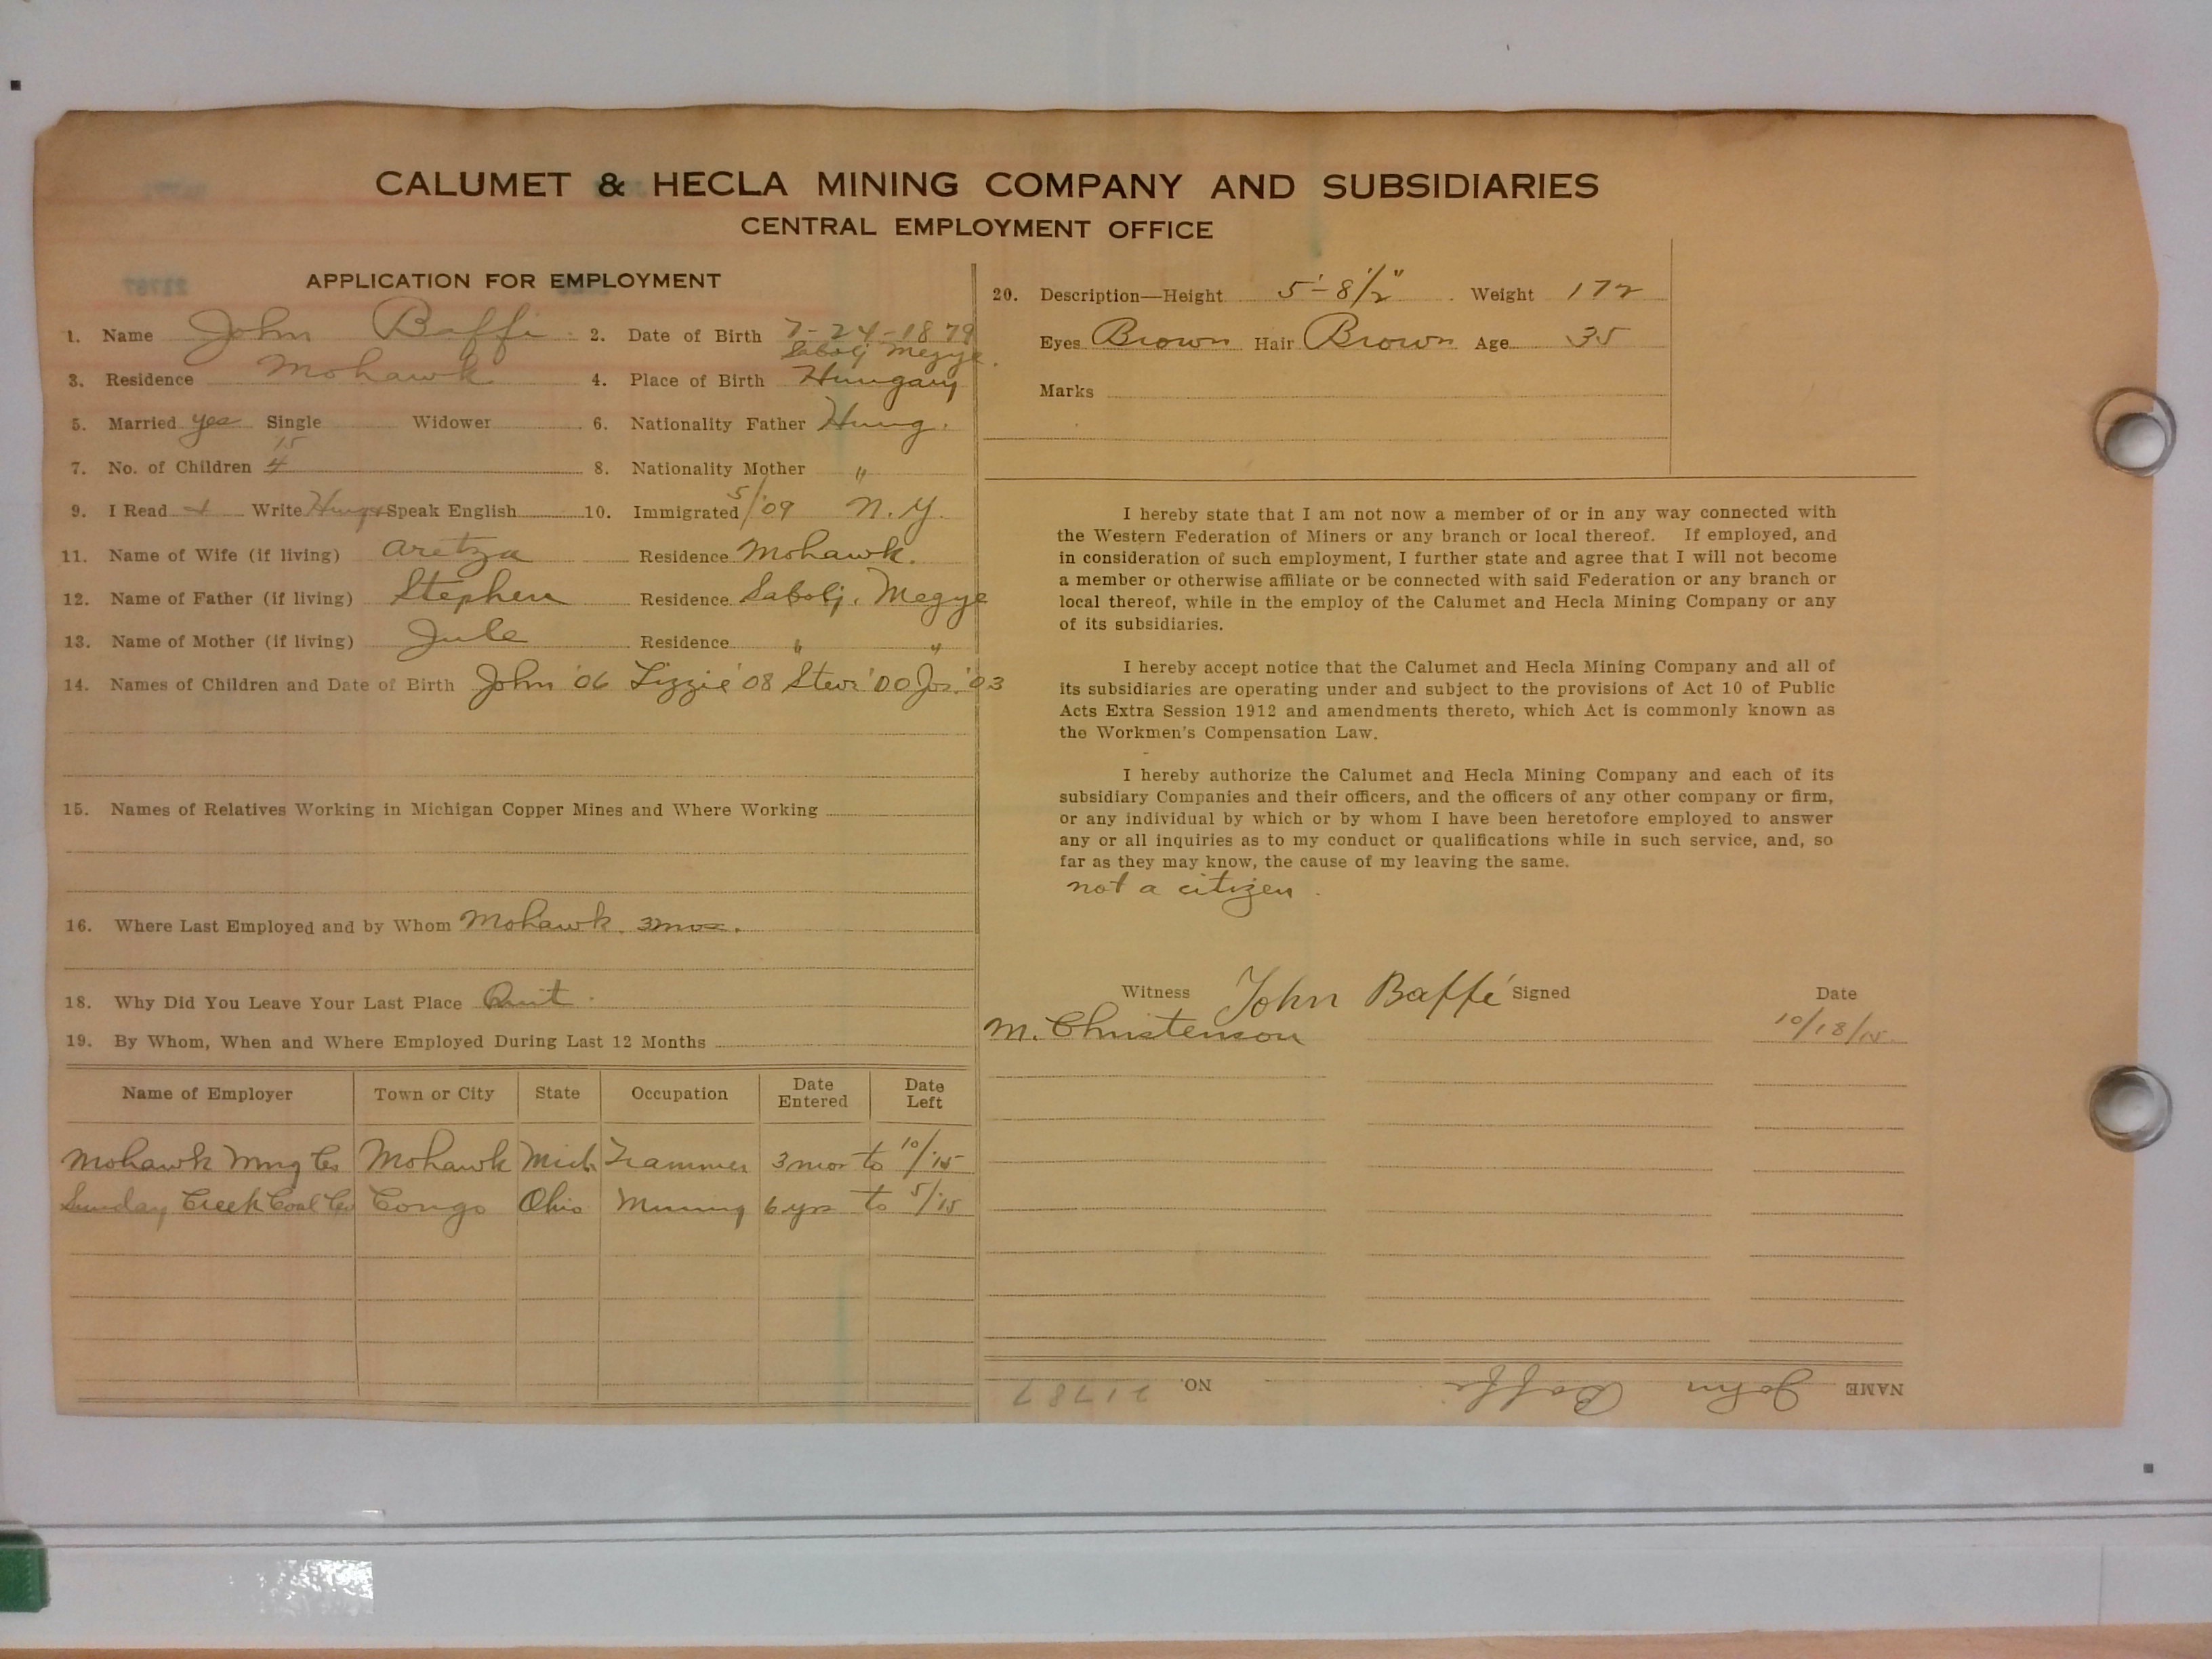 CALUMET & HECLA MINING COMPANY AND SUBSIDIARIES
CENTRAL EMPLOYMENT OFFICE
APPLICATION FOR EMPLOYMENT
1. Name John Baffi 2. Date of Birth 7-24-1879
Sabolj Megye.
3. Residence Mohawk 4. Place of Birth Hungary
5. Married yes Single Widower 6. Nationality Father Hung.
15
7. No. of Children 4 8. Nationality Mother "
9. I Read + Write Hung Speak English 10. Immigrated 5/'09 N.Y.
11. Name of Wife (if living) Aretza Residence Mohawk.
12. Name of Father (if living) Stephen Residence Sabolj. Megye
13. Name of Mother (if living) Jule Residence " "
14. Names of Children and Date of Birth John '06 Lizzie '08 Steve '00 Jos. '03
15. Names of Relatives Working in Michigan Copper Mines and Where Working
16. Where Last Employed and by Whom Mohawk. 3 mos.
18. Why Did You Leave Your Last Place Quit.
19. By Whom, When and Where Employed During Last 12 Months
Name of Employer Town or City State Occupation Date Entered Date Left
Mohawk Mng Co Mohawk Mich. Trammer 3 mos to 10/'15
Sunday Creek Coal Co Congo Ohio Mining 6 yrs to 5/'15
20. Description—Height 5'-8 1/2" Weight 172
Eyes Brown Hair Brown Age 35
Marks
I hereby state that I am not now a member of or in any way connected with
the Western Federation of Miners or any branch or local thereof. If employed, and
in consideration of such employment, I further state and agree that I will not become
a member or otherwise affiliate or be connected with said Federation or any branch or
local thereof, while in the employ of the Calumet and Hecla Mining Company or any
of its subsidiaries.
I hereby accept notice that the Calumet and Hecla Mining Company and all of
its subsidiaries are operating under and subject to the provisions of Act 10 of Public
Acts Extra Session 1912 and amendments thereto, which Act is commonly known as
the Workmen's Compensation Law.
I hereby authorize the Calumet and Hecla Mining Company and each of its
subsidiary Companies and their officers, and the officers of any other company or firm,
or any individual by which or by whom I have been heretofore employed to answer
any or all inquiries as to my conduct or qualifications while in such service, and, so
far as they may know, the cause of my leaving the same.
not a citizen.
Witness John Baffé Signed Date
M. Christenson 10/18/15
NAME John Baffi NO. 21787